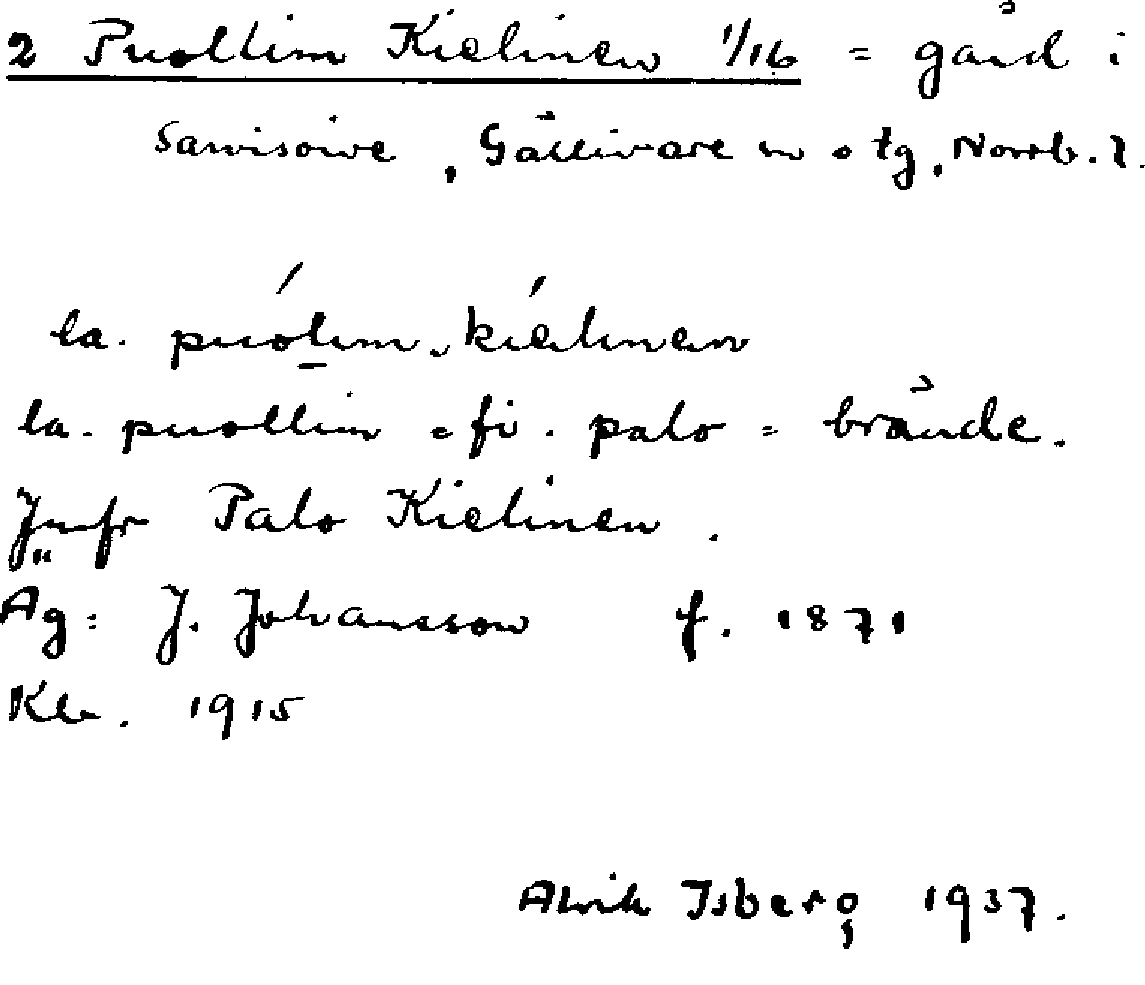 2 Puollim Kielinen 1/16 = gård i
Sarvisoive, Gällivare sn o tg, Norrb. l.
la. púoḻim, kíelinen
la. puollim = fi. palo = brände.
Jmfr Palo Kielinen.
Äg: J. Johansson f. 1871
Kl. 1915
Alvik Isberg 1937.